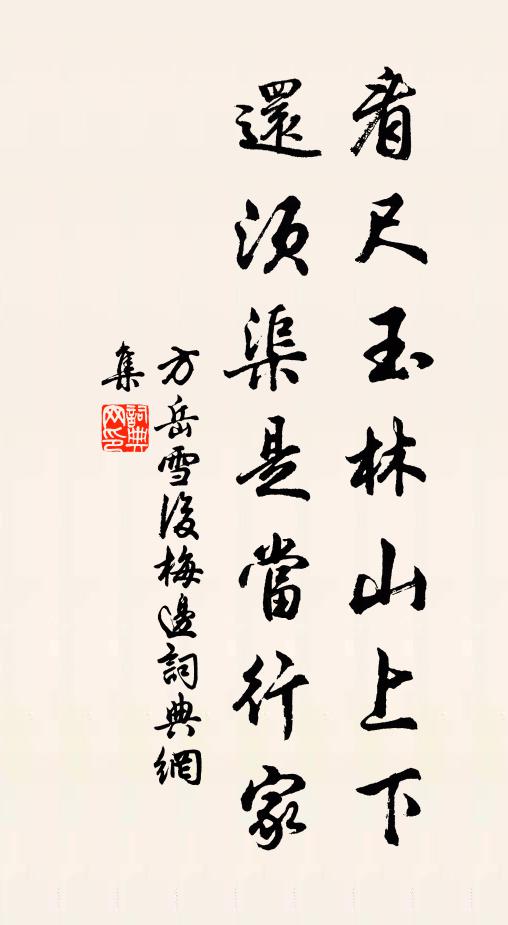 看尺玉林山上下
還須渠是當行家
方岳雪後梅邊詞典網
集
詞典
网印